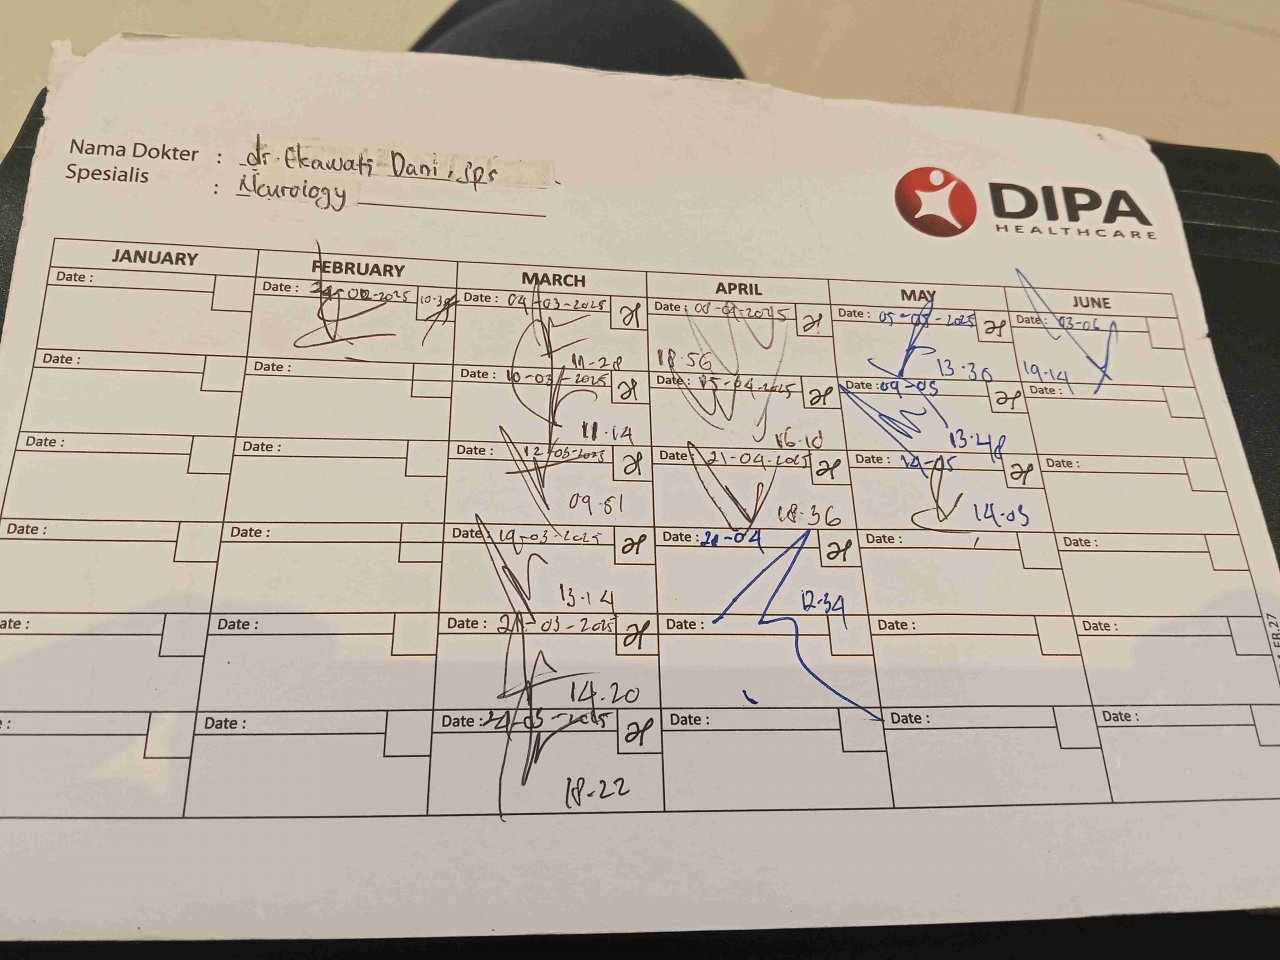 Nama Dokter : dr. Ekawati Dani, Sps
Spesialis : Neurology
DIPA
HEALTHCARE
JANUARY FEBRUARY MARCH APRIL MAY JUNE
Date : Date : 02-2025 10-30 Date : 04-03-2025 Date : 2025 Date : 05-05-2025 Date : 03-06
11-28 18.56 13-30 19-14
Date : Date : Date : 10-03-2025 Date : 15-04-2025 Date : 09-05 Date :
11.14 16.10 13-48
Date : Date : Date : 12-03-2025 Date : 21-04-2025 Date : 14-05 Date :
09-51 18-36 14-03
Date : Date : Date : 19-03-2025 Date : 04 Date : Date :
13-14 12-34
ate : Date : Date : 21-03-2025 Date : Date : Date :
14.20
: Date : Date : 24-03-2025 Date : Date : Date :
18-22